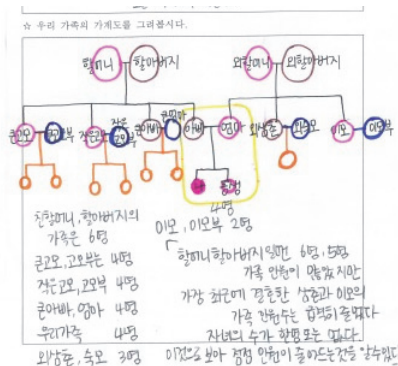 ☆ 우리 가족의 가계도를 그려봅시다.
할머니 할아버지 외할머니 외할아버지
큰고모 고모부 작은고모 작은고모부 큰아빠 큰엄마 아빠 엄마 외삼촌 외숙모 이모 이모부
나 동생
4명
친할머니, 할아버지의
가족은 6명
큰고모, 고모부는 4명
작은고모, 고모부 4명
큰아빠, 엄마 4명
우리가족 4명
외삼촌, 숙모 3명
이모, 이모부 2명
할머니할아버지 6명, 5명
가족 인원이 많았지만
가장 최근에 결혼한 삼촌과 이모의
가족 인원수는 줄었다
자녀의 수가 한명 또는 없다.
이것으로 보아 점점 인원이 줄어드는것을 알수있다